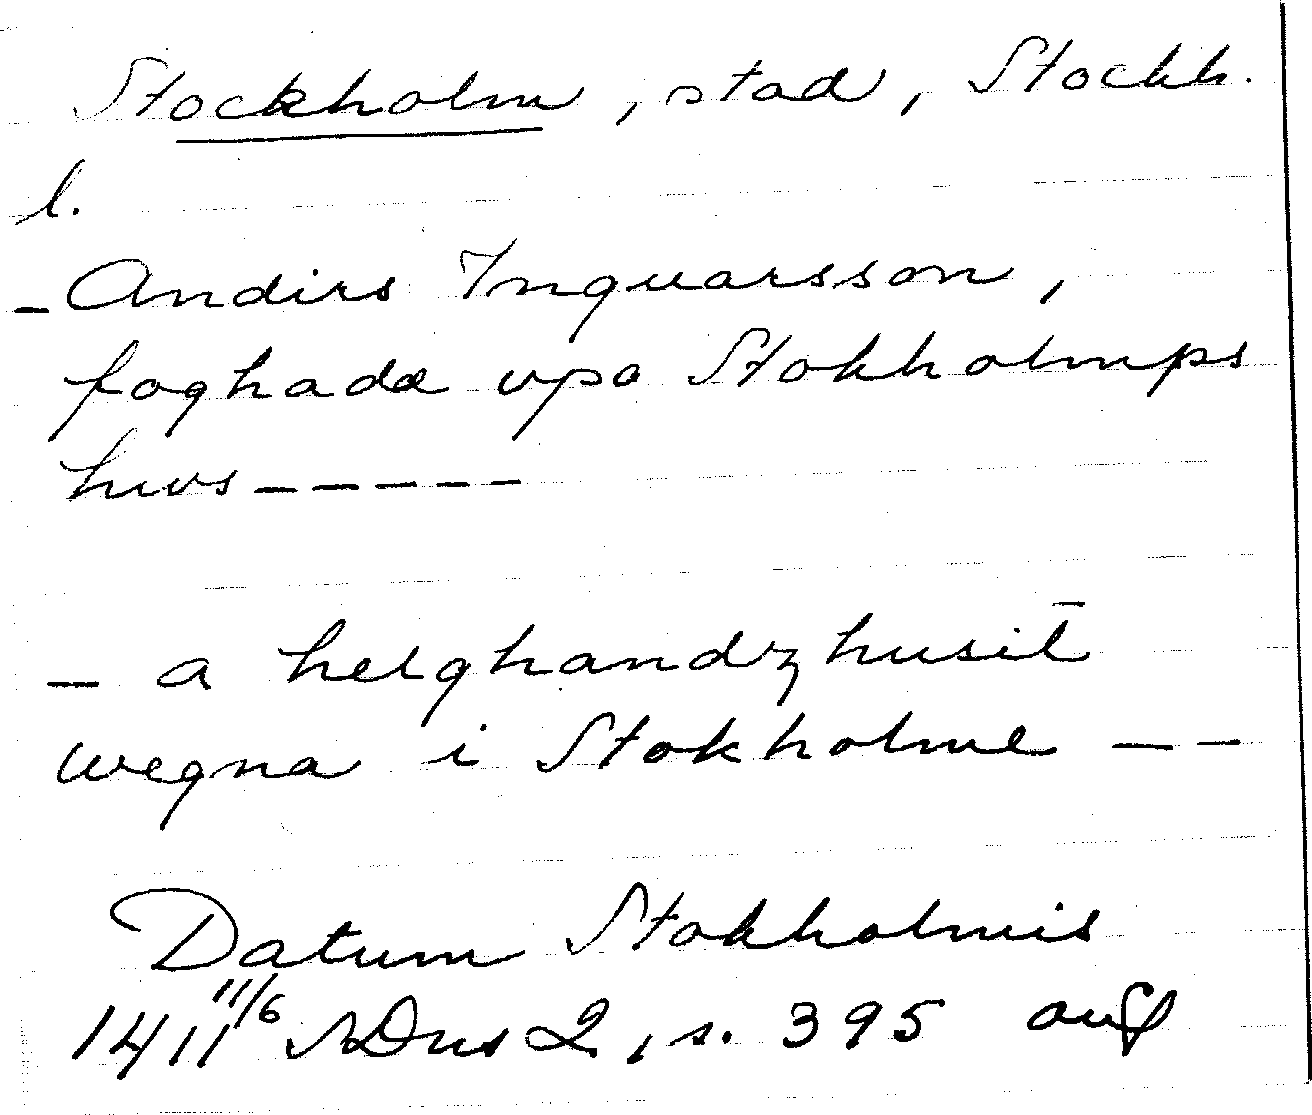 Stockholm, stad, Stockh.
l.
- Andirs Inguarsson,
foghadæ vpa Stokholmps
hws - - - - -
- a helghandz husit
wegna i Stokholme - -
Datum Stokholmis
1411 11/6 SDns 2, s. 395 avs